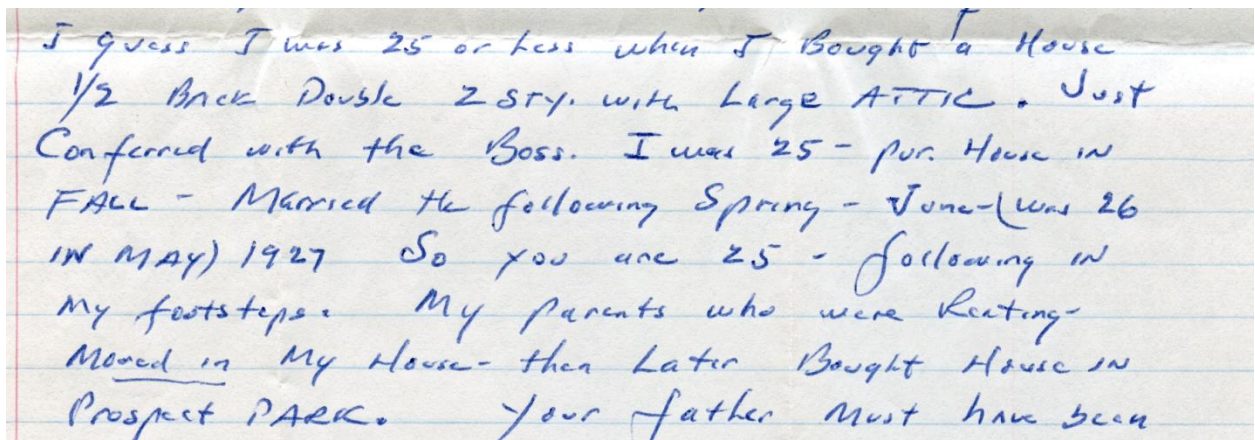 I guess I was 25 or less when I Bought a House
1/2 Brick Double 2 sty. with Large ATTIC. Just
Conferred with the Boss. I was 25 - pur. House IN
FALL - Married the following Spring - June - (was 26
IN MAY) 1927 So you are 25 - following IN
My footsteps. My parents who were Renting -
Moved in My House - then Later Bought House IN
Prospect PARK. Your father Must have been